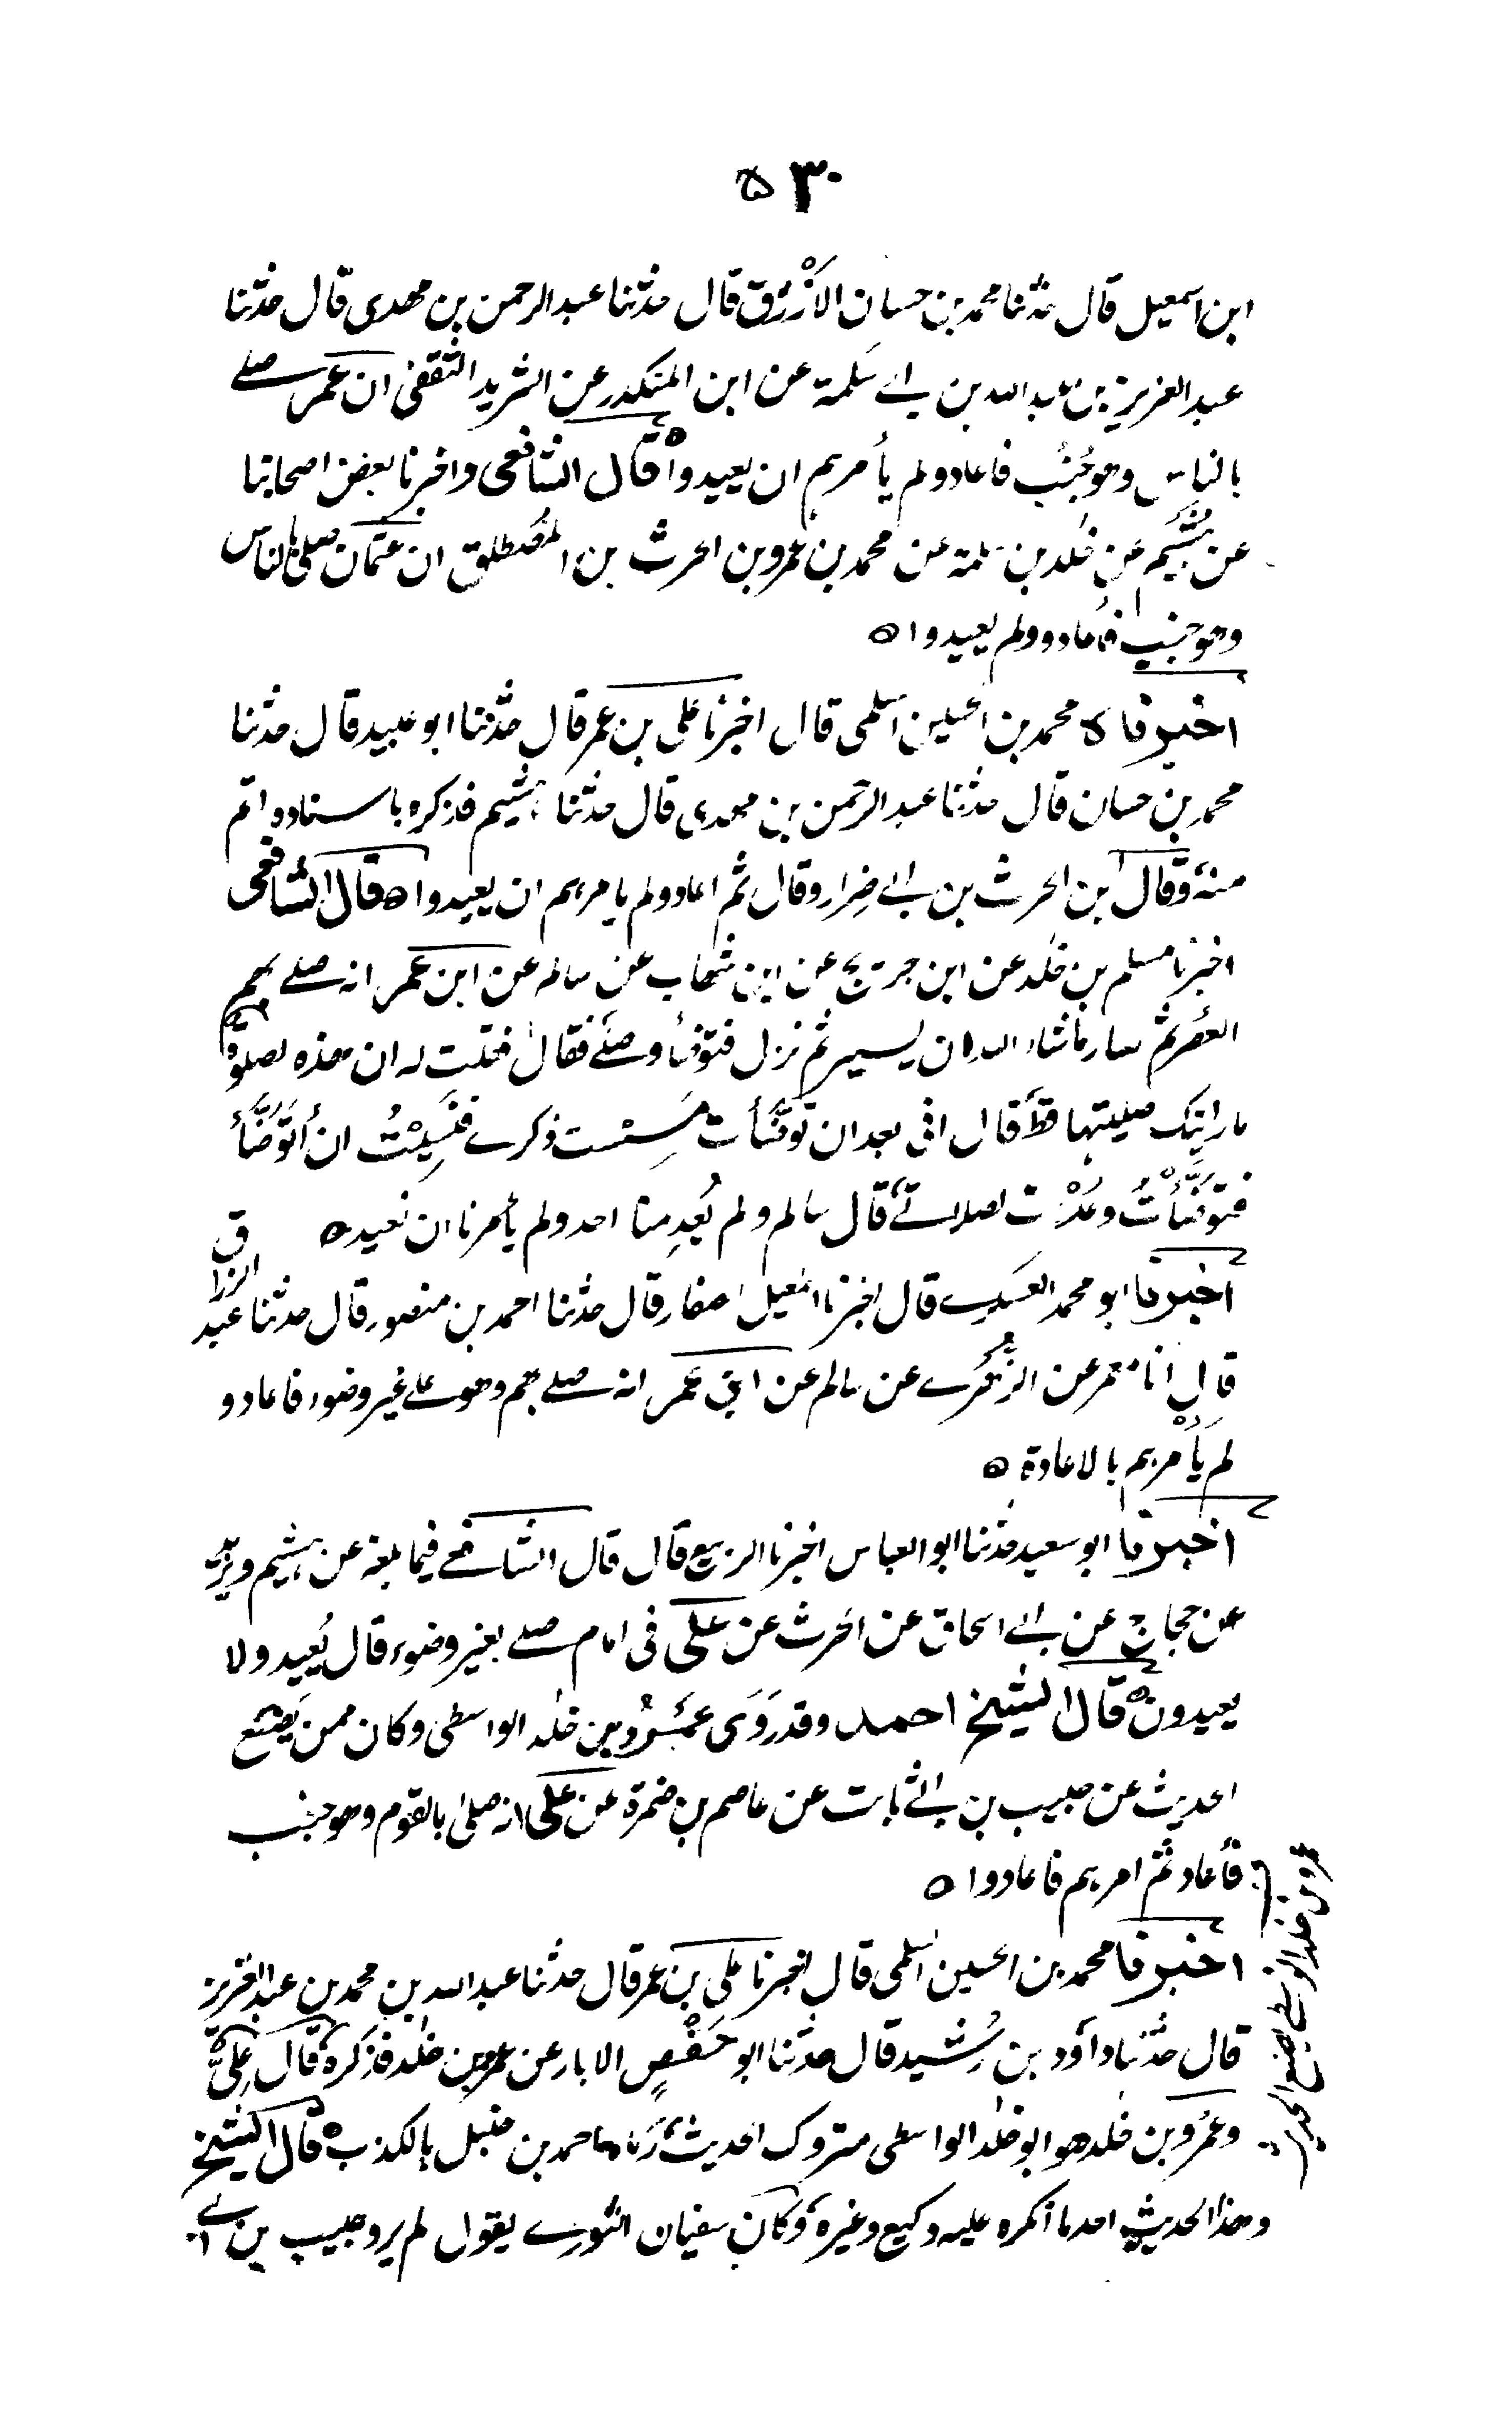 ٥٣٠
ابن اسمعيل قال حدثنا محمد بن حسان الازْرَق قال حدثنا عبد الرحمن بن مهدى قال حدثنا
عبد العزيز بن عبد الله بن ابى سَلمة عن ابن المنكدر عن الشريد الثقفى ان عمر صلى
بالناس وهو جُنُبٌ فاعاد ولم يأمرهم ان يعيدوا ه قال الشافعى واخبرنا بعض اصحابنا
عن هُشَيْم عن خلد بن سلمة عن محمد بن عمرو بن الحرث بن المُصْطلق ان عثمان صلى بالناس
وهو جنب فأعاد ولم يعيدوا ه
اخبرنا ه محمد بن الحسين السلمى قال اخبرنا على بن عمر قال حدثنا ابو عبيد قال حدثنا
محمد بن حسان قال حدثنا عبد الرحمن بن مهدى قال حدثنا هشيم فذكره باسناده اتم
منهُ وقال ابن الحرث بن ابى ضِرار وقال ثم اعاد ولم يامرهم ان يعيدوا ه قال الشافعى
اخبرنا مسلم بن خلد عن ابن جريج عن ابن شهاب عن سالم عن ابن عمر انه صلى بهم
العصر ثم سار ما شاء الله ان يسير ثم نزل فتوضأ وصلى فقال فقلت له ان هذه لصلوة
ما رايتك صليتها قط قال انى بعد ان توضّأت مَسِسْت ذكرى فنَسِيْتُ ان أتَوَضَّأَ
فتوضَّأْتُ وعُدْت لصلاتى قال سالم ولم يُعِد منا احد ولم يأمرنا ان نعيد ه
اخبرنا ابو محمد السكرى قال اخبرنا اسمعيل الصفار قال حدثنا احمد بن منصور قال حدثنا عبد الرزاق
قال انا معمر عن الزُهْرى عن سالم عن ابن عمر انه صلى بهم وهو على غير وضوء فاعاد و
لم يَأْمرهم بالاعادة ه
اخبرنا ابو سعيد حدثنا ابو العباس اخبرنا الربيع قال قال الشافعى فيما بلغه عن هشيم ويزيد
عن حجاج عن ابى اسحاق عن الحَرث عن على فى امام صلى بغير وضوء قال يُعيد ولا
يعيدون ه قال الشيخ احمد وقد رَوَى عَمْرُو بن خلد الواسطى وكان ممن يَضَع
الحديث عن حبيب بن ابى ثابت عن عاصم بن ضمرة عن على انه صلى بالقوم وهو جنب
فأعاد ثم امرهم فاعادوا ه
عمرو بن خلد الواسطى يضع الحديث
اخبرنا محمد بن الحسين السلمى قال اخبرنا على بن عمر قال حدثنا عبد الله بن محمد بن عبد العزيز
قال حدّثنا داوٗد بن رُشيد قال حدثنا ابو حَفْصٍ الابار عن عمرو بن خلد فذكره ه قال عَلىٌّ
وعمرو بن خلد هو ابو خلد الواسطى متروك الحديث رَماه احمد بن حنبل بالكذب ه قال الشيخ
وهذا الحديث احد ما انكره عليه وكيع وغيره وكان سفيان الثورى يقول لم يرو حبيب بن ابى